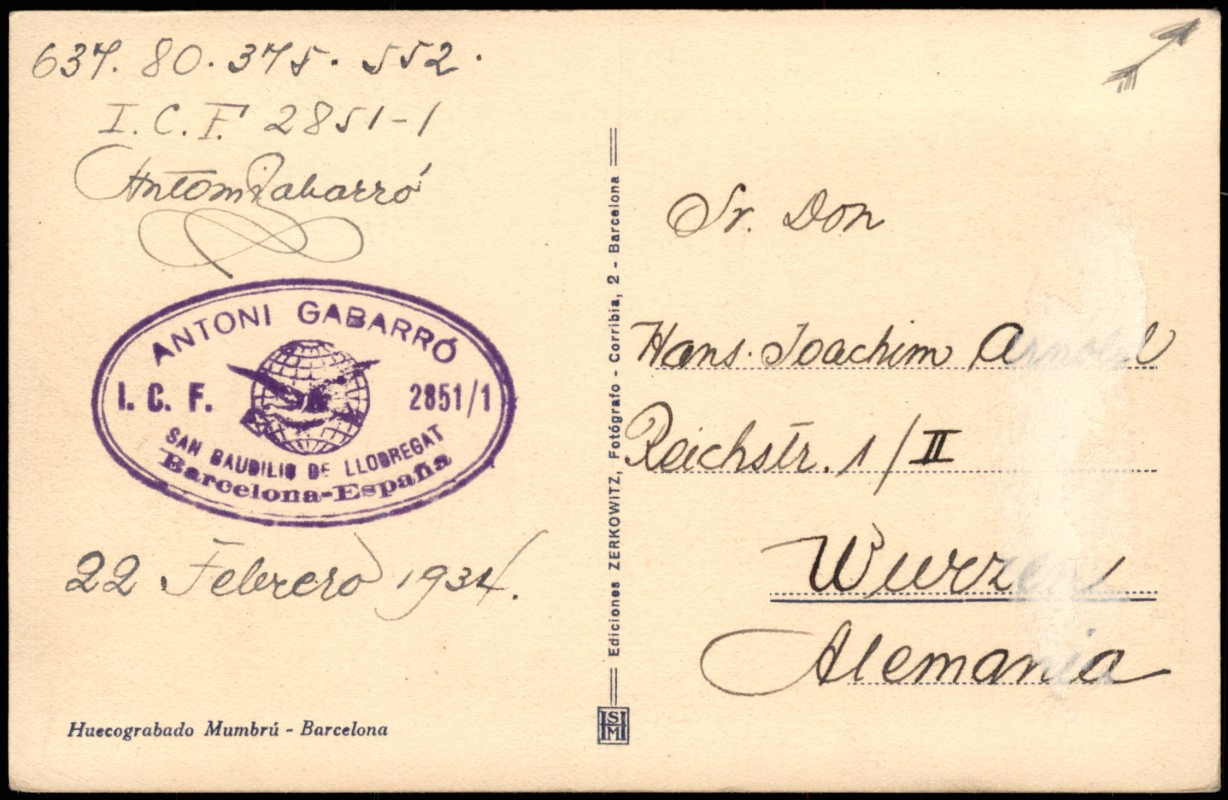 637. 80. 375. 552.
I. C. F. 2851-1
Antoni Gabarró
ANTONI GABARRÓ
I. C. F. 2851/1
SAN BAUDILIO DE LLOBREGAT
Barcelona-España
22 Febrero 1934.
Huecograbado Mumbrú - Barcelona
Ediciones ZERKOWITZ, Fotógrafo - Corribia, 2 - Barcelona
HSM
Sr. Don
Hans-Joachim Arnold
Reichstr. 1/II
Wurzen
Alemania